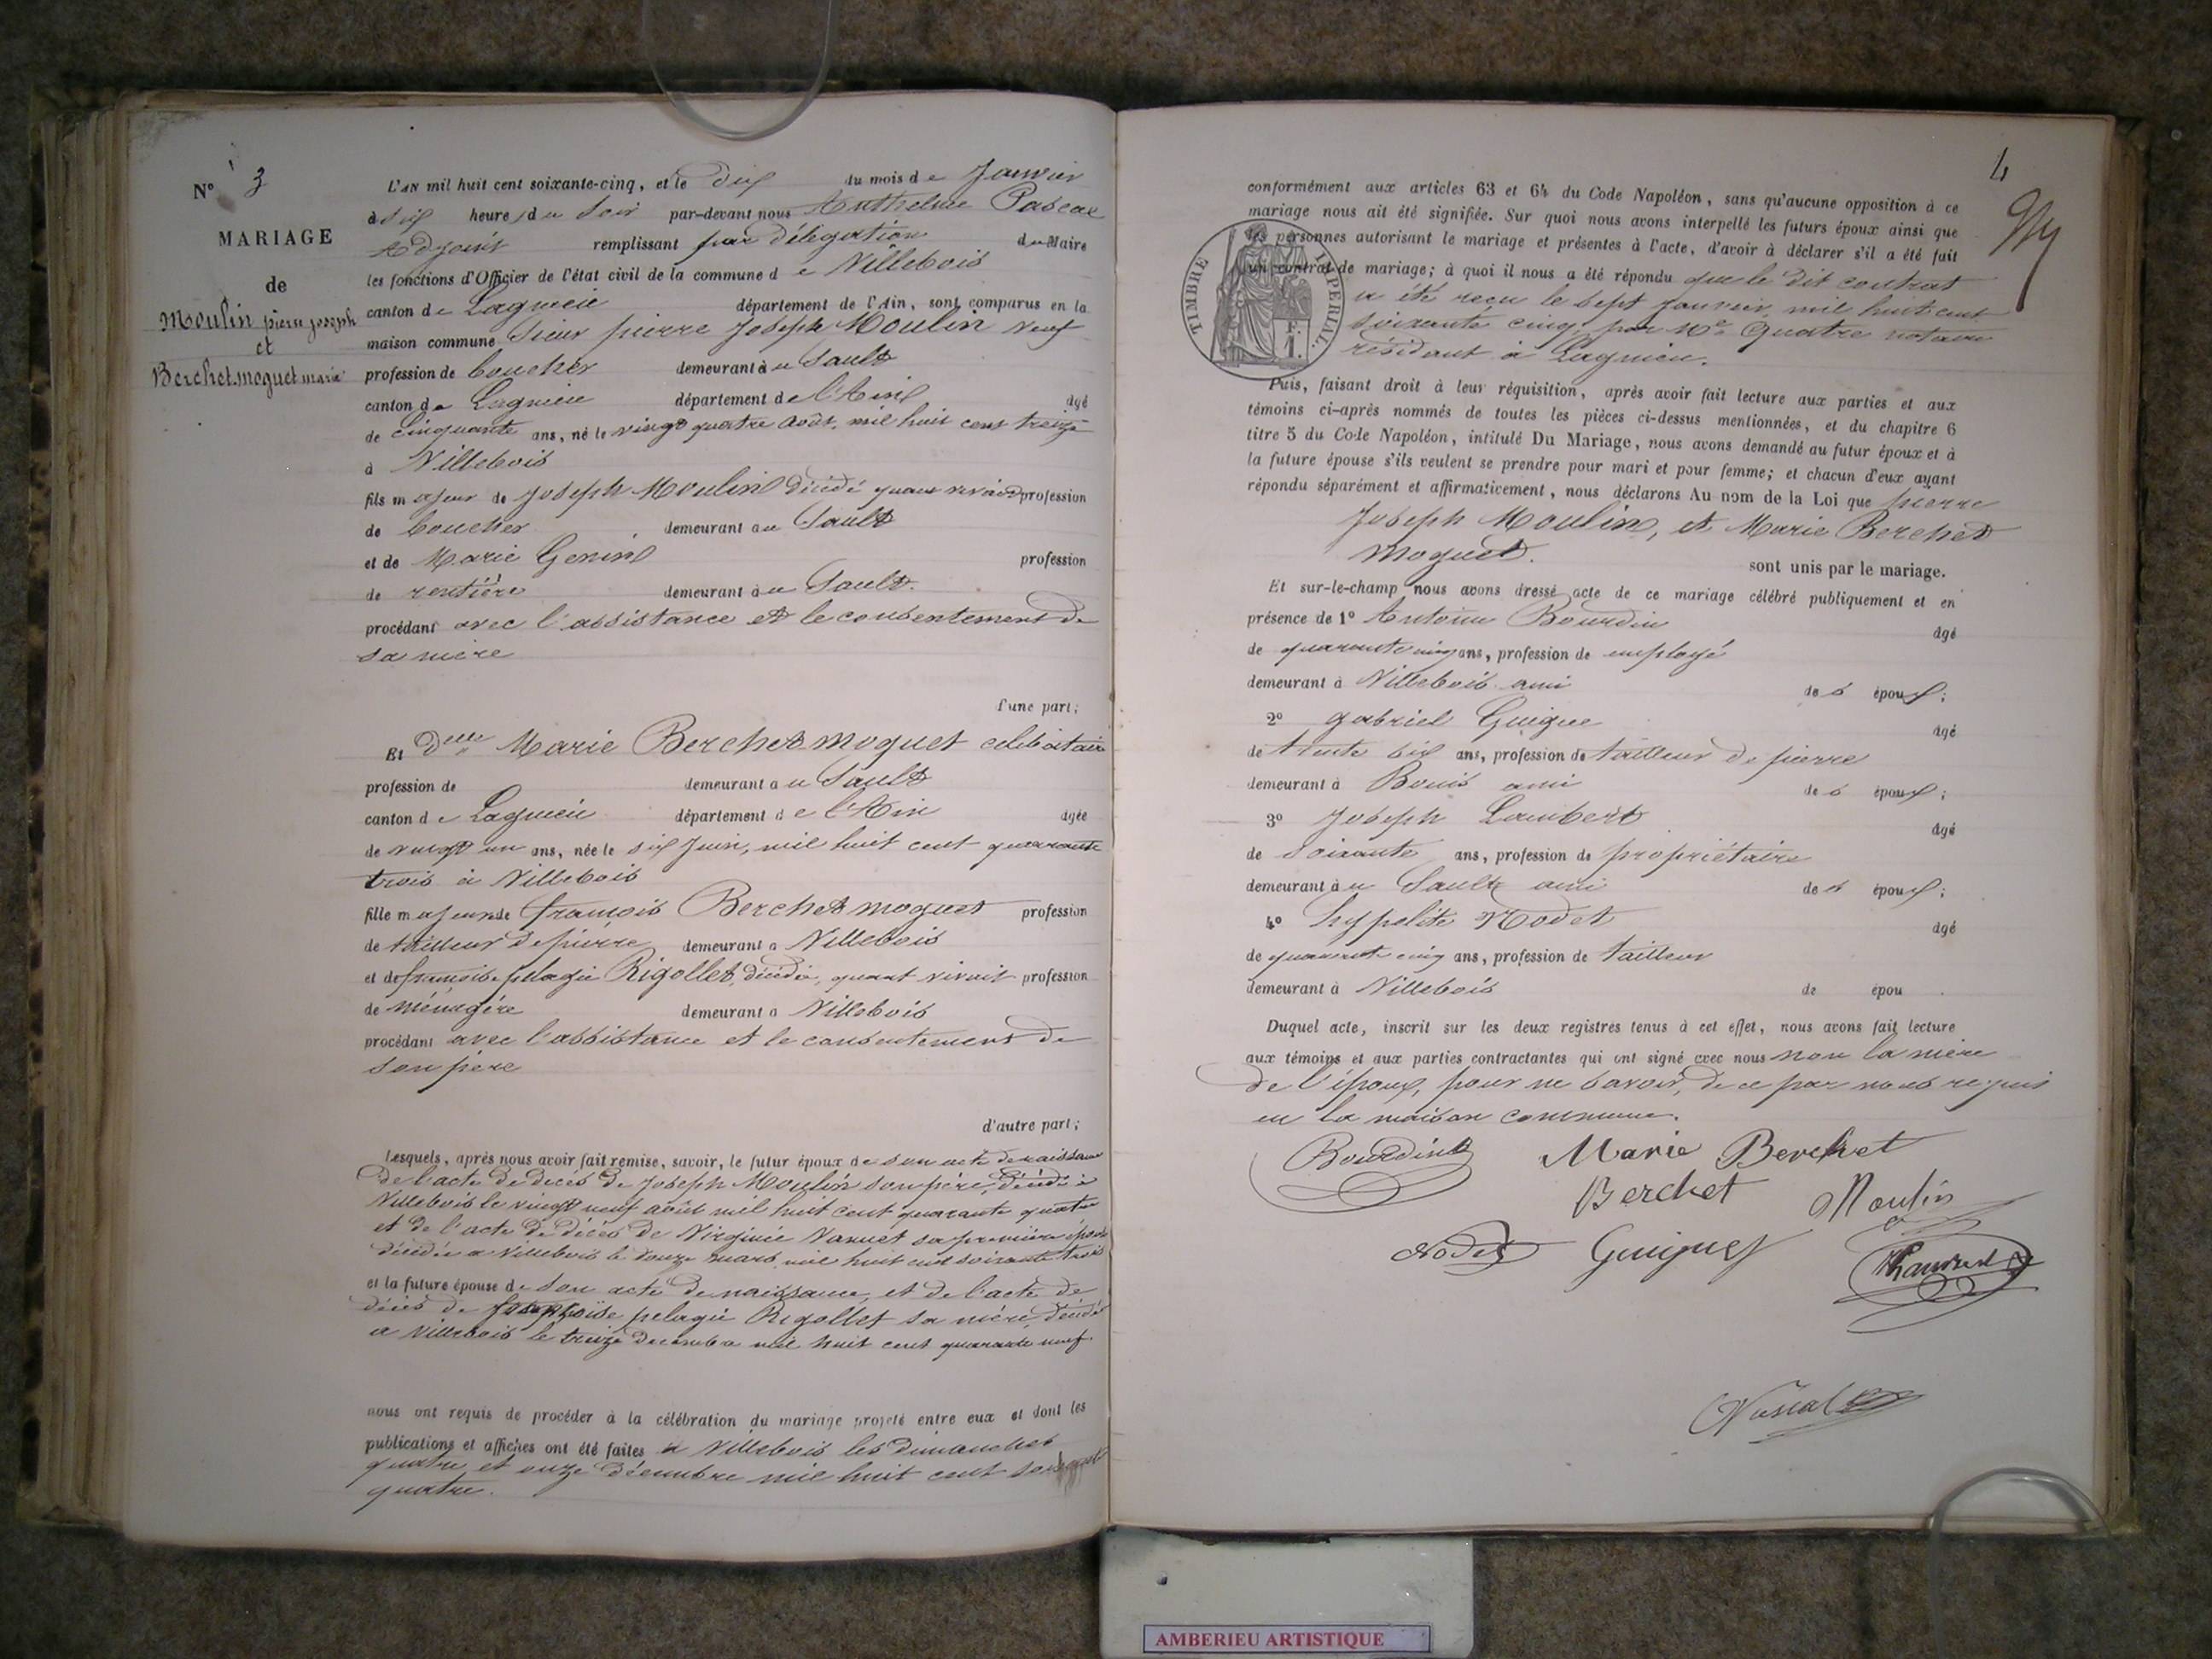 N° 3
MARIAGE
de
Moulin pierre joseph
et
Berchet moguet marie
L'AN mil huit cent soixante-cinq, et le dix du mois de Janvier
à six heures du Soir par-devant nous Anthelme Pascal
Adjoint remplissant par délégation du Maire
les fonctions d'Officier de l'état civil de la commune de Villebois
canton de Lagnieu département de l'Ain, sont comparus en la
maison commune Sieur pierre Joseph Moulin veuf
profession de boucher demeurant à au Sault
canton de Lagnieu département de l'Ain âgé
de cinquante ans, né le vingt quatre août, mil huit cent treize
à Villebois
fils majeur de Joseph Moulin décédé quant vivait profession
de boucher demeurant au Sault
et de Marie Genin profession
de rentière demeurant à au Sault.
procédant avec l'assistance et le consentement de
sa mère
d'une part;
Et Delle Marie Berchet moguet celibataire
profession de demeurant a u Sault
canton de Lagnieu département de l'Ain âgée
de vingt un ans, née le six Juin, mil huit cent quarante
trois à Villebois
fille majeur de françois Berchet moguet profession
de tailleur de pierre demeurant a Villebois
et de françoise pelagie Rigollet, décédée, quant vivait profession
de ménagère demeurant a Villebois
procédant avec l'assistance et le consentement de
son père
d'autre part;
Lesquels, après nous avoir fait remise, savoir, le futur époux de son acte de naissance
de l'acte de décès de Joseph Moulin son père, décédé à
Villebois le vingt neuf août mil huit cent quarante quatre
et de l'acte de décès de Virginie Vannet sa première épouse
décédée a Villebois le douze mars, mil huit cent soixante trois
et la future épouse de son acte de naissance, et de l'acte de
décès de françoise pelagie Rigollet sa mère, décédée
a Villebois le treize decembre mil huit cent quarante neuf.
nous ont requis de procéder à la célébration du mariage projeté entre eux et dont les
publications et affiches ont été faites a Villebois les dimanches
quatre et onze décembre mil huit cent soixante
quatre.
4
conformément aux articles 63 et 64 du Code Napoléon, sans qu'aucune opposition à ce
mariage nous ait été signifiée. Sur quoi nous avons interpellé les futurs époux ainsi que
les personnes autorisant le mariage et présentes à l'acte, d'avoir à déclarer s'il a été fait
un contrat de mariage; à quoi il nous a été répondu que le dit contrat
a été reçu le sept janvier, mil huit cent
soixante cinq, par Me Quatre notaire
résidant à Lagnieu.
TIMBRE IMPERIAL.
1 F.
Puis, faisant droit à leur réquisition, après avoir fait lecture aux parties et aux
témoins ci-après nommés de toutes les pièces ci-dessus mentionnées, et du chapitre 6
titre 5 du Code Napoléon, intitulé Du Mariage, nous avons demandé au futur époux et à
la future épouse s'ils veulent se prendre pour mari et pour femme; et chacun d'eux ayant
répondu séparément et affirmativement, nous déclarons Au nom de la Loi que pierre
Joseph Moulin, et Marie Berchet
moguet. sont unis par le mariage.
Et sur-le-champ nous avons dressé acte de ce mariage célébré publiquement et en
présence de 1° Antoine Bourdin âgé
de quarante cinq ans, profession de employé
demeurant à Villebois ami des époux;
2° gabriel Guigue âgé
de trente six ans, profession de tailleur de pierre
demeurant à Bouis ami des époux;
3° Joseph Lambert âgé
de soixante ans, profession de propriétaire
demeurant à u Sault ami des époux;
4° hyppolite Nodet âgé
de quarante cinq ans, profession de tailleur
demeurant à Villebois de épou
Duquel acte, inscrit sur les deux registres tenus à cet effet, nous avons fait lecture
aux témoins et aux parties contractantes qui ont signé avec nous non la mère
de l'époux, pour ne savoir, de ce par nous requis
en la maison commune.
Bourdin
Marie Berchet
Berchet Moulin
Nodet Guigues
AMBERIEU ARTISTIQUE